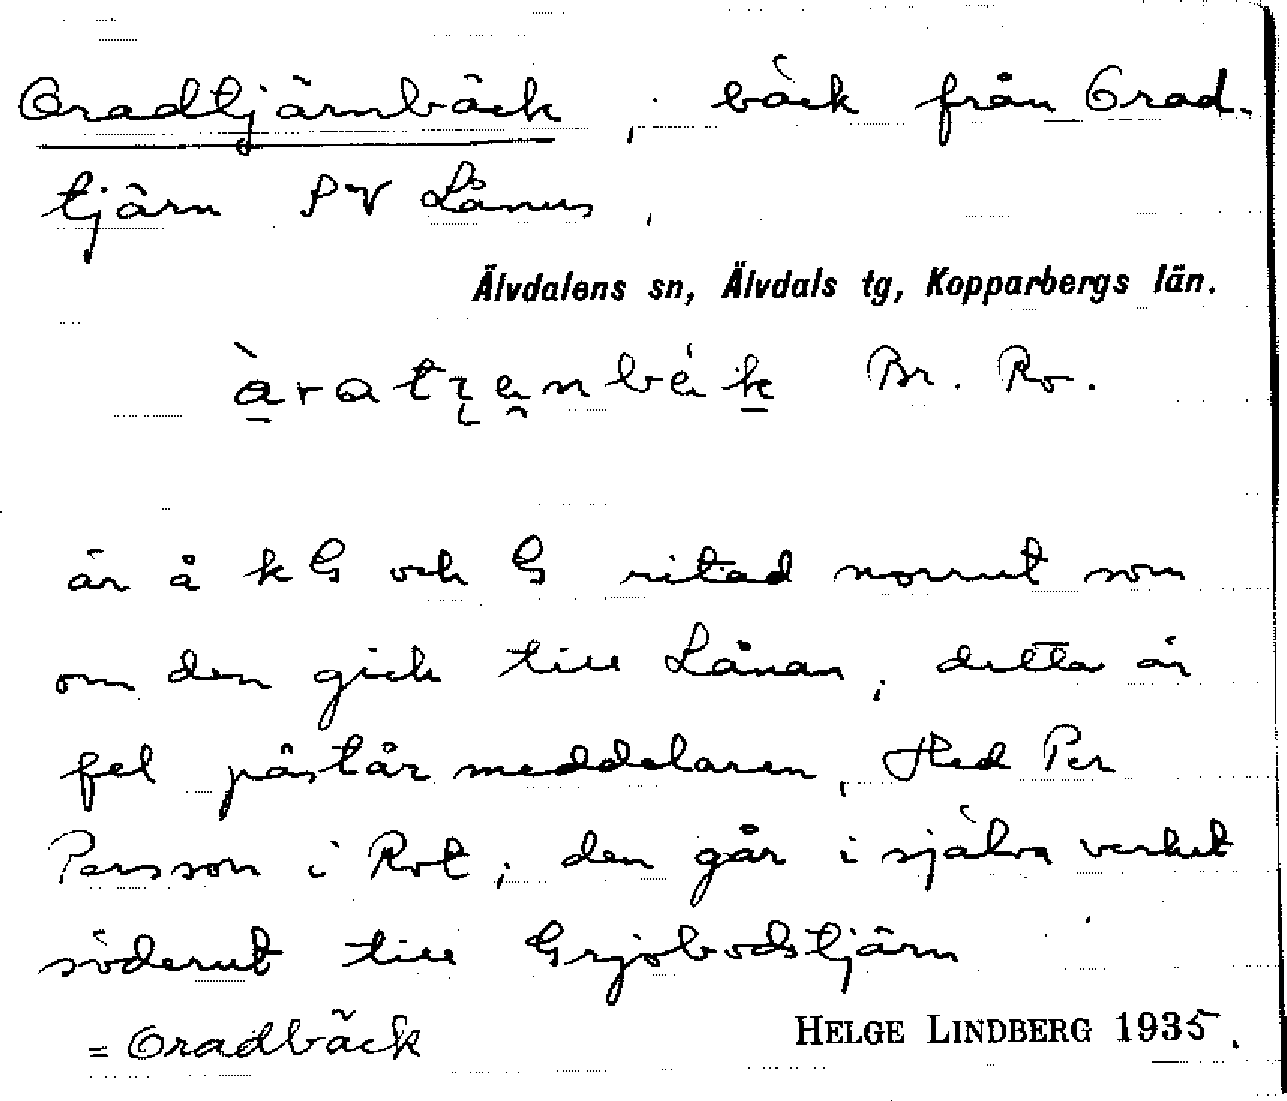 Oradtjärnbäck, bäck från Orad-
tjärn SV Lånus,
Älvdalens sn, Älvdals tg, Kopparbergs län.
Br. Ro.
är å kG och G ritad norrut som
om den gick till Lånan, detta är
fel påstår meddelaren, Hed Per
Persson i Rot, den går i själva verket
söderut till Grjobodstjärn
= Oradbäck
HELGE LINDBERG 1935.